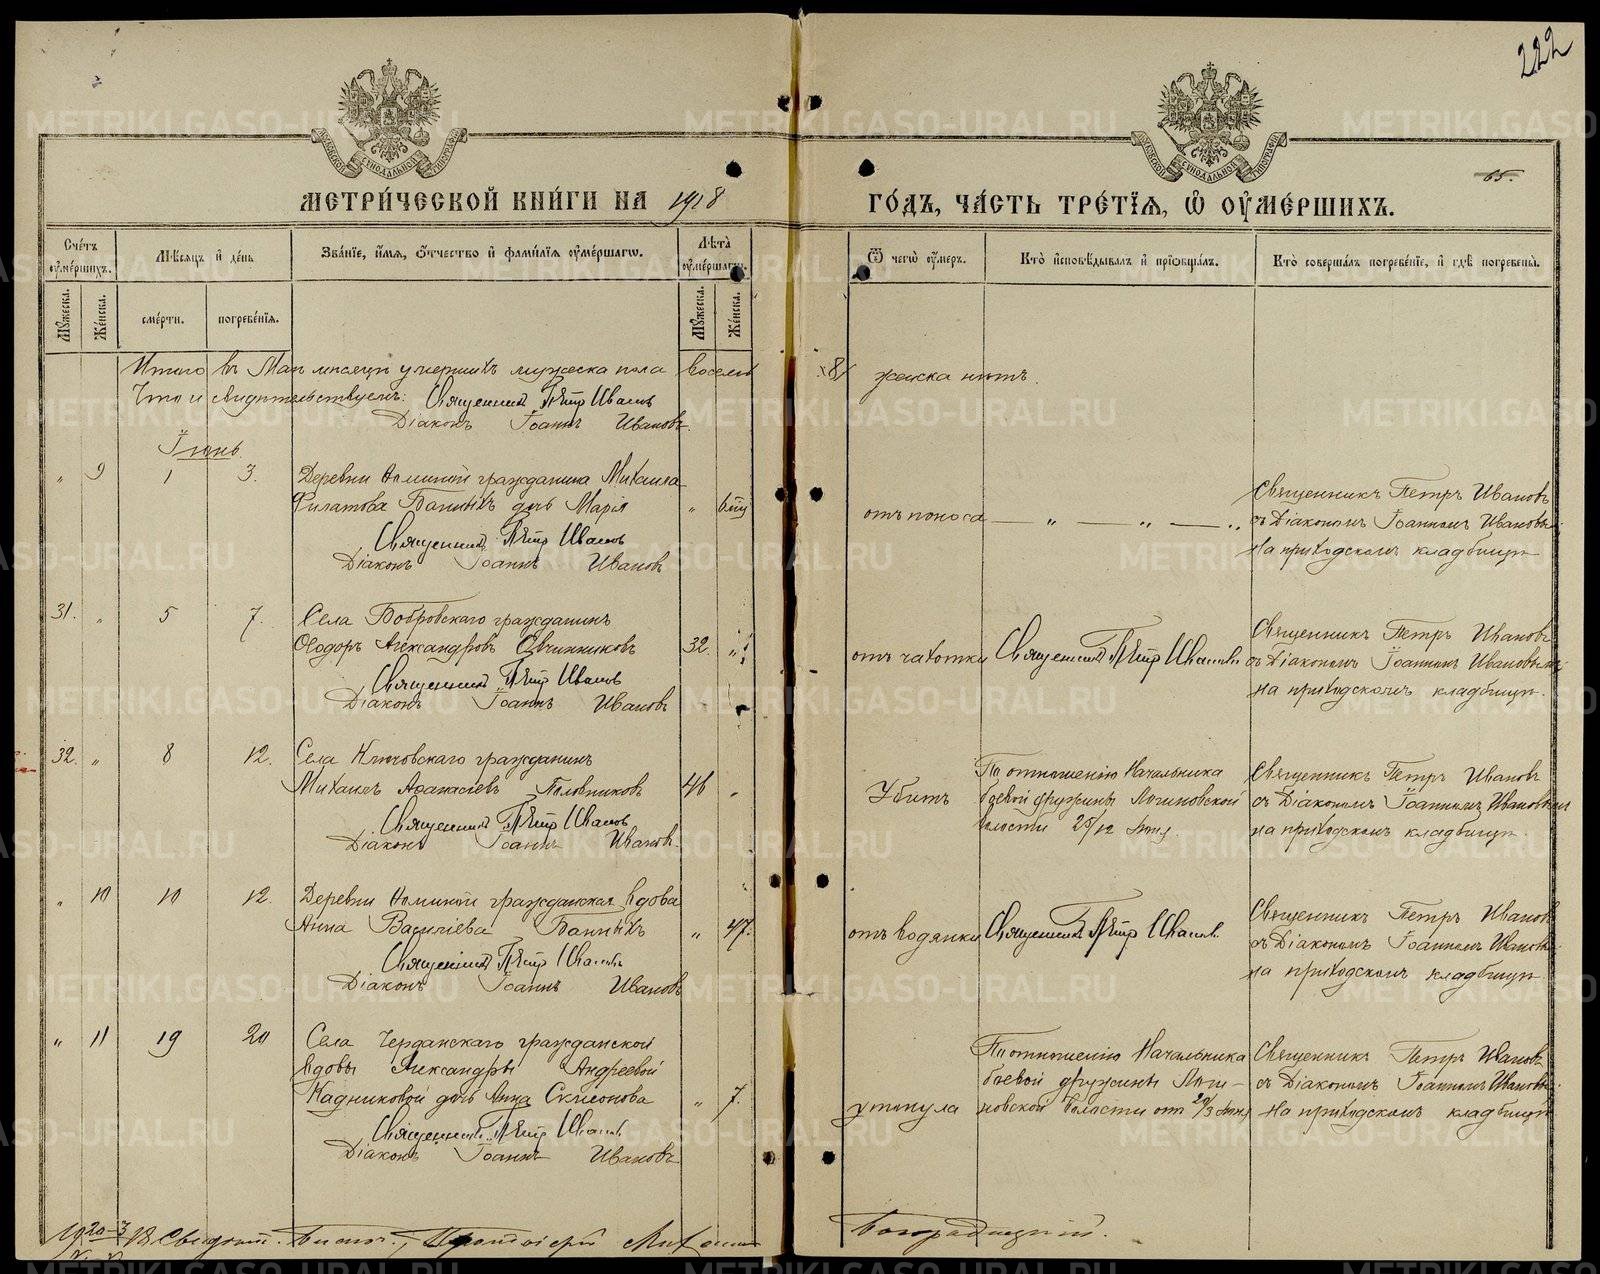 222
65.
МЕТРИ́ЧЕСКОЙ КНИ́ГИ НА 1918 ГО́ДЪ, ЧА́СТЬ ТРЕ́ТІЯ, Ѡ ОУМЕ́РШИХЪ.
Сче́тъ оуме́ршихъ.
Мѣ́сяцъ и де́нь
Зва́нїе, и́мя, ѻ́тчество и фами́лїя оуме́ршагѡ.
Лѣ́та оуме́ршагѡ.
Ѿ чегѡ̀ оу́меръ.
Кто̀ и́сповѣ́дывалъ и прїѡбща́лъ.
Кто̀ соверша́лъ погребе́нїе, и гдѣ̀ погребены̀.
Мꙋ́жеска.
Же́нска.
сме́рти.
погребе́нїя.
Мꙋ́жеска.
Же́нска.
Итого въ Маѣ мѣсяцѣ умершихъ мужеска пола восемь /8/ женска нѣтъ.
Что и свидѣтельствуемъ: Священникъ Петръ Ивановъ
Діаконъ Іоаннъ Ивановъ.
Іюнь
" 9 1 3.
Деревни гражданина Михаила
Филатова Банныхъ дочь Марія " 6
Священникъ Петръ Ивановъ
Діаконъ Іоаннъ Ивановъ
отъ поноса — " — " — "
Священникъ Петръ Ивановъ
съ Діакономъ Іоанномъ Ивановымъ
на приходскомъ кладбищѣ
31. " 5 7.
Села Бобровскаго гражданинъ
Ѳеодоръ Александровъ Овчинниковъ 32. "
Священникъ Петръ Ивановъ
Діаконъ Іоаннъ Ивановъ
отъ чахотки
Священникъ Петръ Ивановъ
Священникъ Петръ Ивановъ
съ Діакономъ Іоанномъ Ивановымъ
на приходскомъ кладбищѣ.
32. " 8 12.
Села Ключовскаго гражданинъ
Михаилъ Аѳанасіевъ Половниковъ 46 "
Священникъ Петръ Ивановъ
Діаконъ Іоаннъ Ивановъ.
Убитъ
По отношенію Начальника
боевой дружины Логиновской
волости 25/12 Іюня.
Священникъ Петръ Ивановъ
съ Діакономъ Іоанномъ Ивановымъ
на приходскомъ кладбищѣ.
" 10 10 12.
Деревни гражданская вдова
Анна Василіева Банныхъ " 47.
Священникъ Петръ Ивановъ
Діаконъ Іоаннъ Ивановъ
отъ водянки
Священникъ Петръ Ивановъ.
Священникъ Петръ Ивановъ
съ Діакономъ Іоанномъ Ивановымъ
на приходскомъ кладбищѣ
" 11 19 20
Села Черданскаго гражданской
вдовы Александры Андреевой
Кадниковой дочь Анна Симеонова " 7.
Священникъ Петръ Ивановъ
Діаконъ Іоаннъ Ивановъ
утонула
По отношенію Начальника
боевой дружины Логи-
новской волости отъ Іюня
Священникъ Петръ Ивановъ
съ Діакономъ Іоанномъ Ивановымъ
на приходскомъ кладбищѣ
Протоіерей Богородицкій.
METRIKI.GASO-URAL.RU